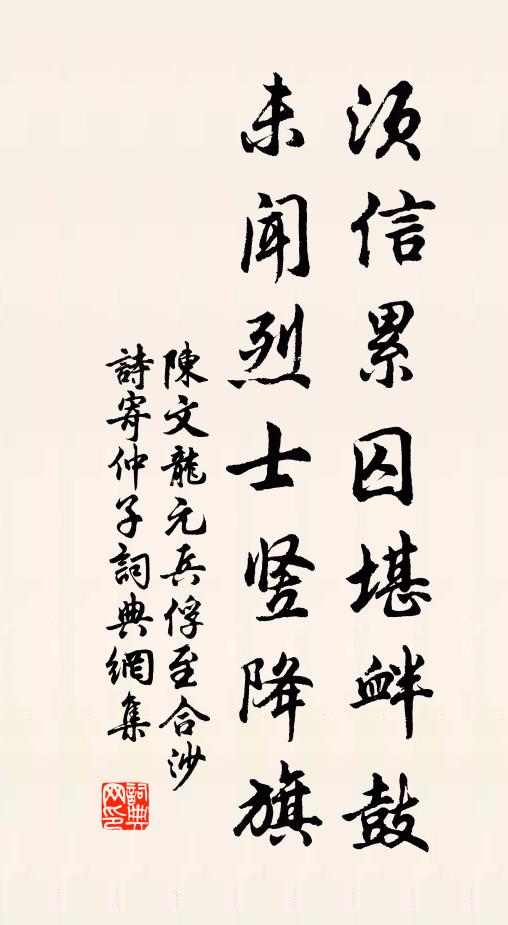 须信累囚堪衅鼓
未闻烈士竖降旗
陳文龍元兵俘至合沙
詩寄仲子詞典網集
詞典网印